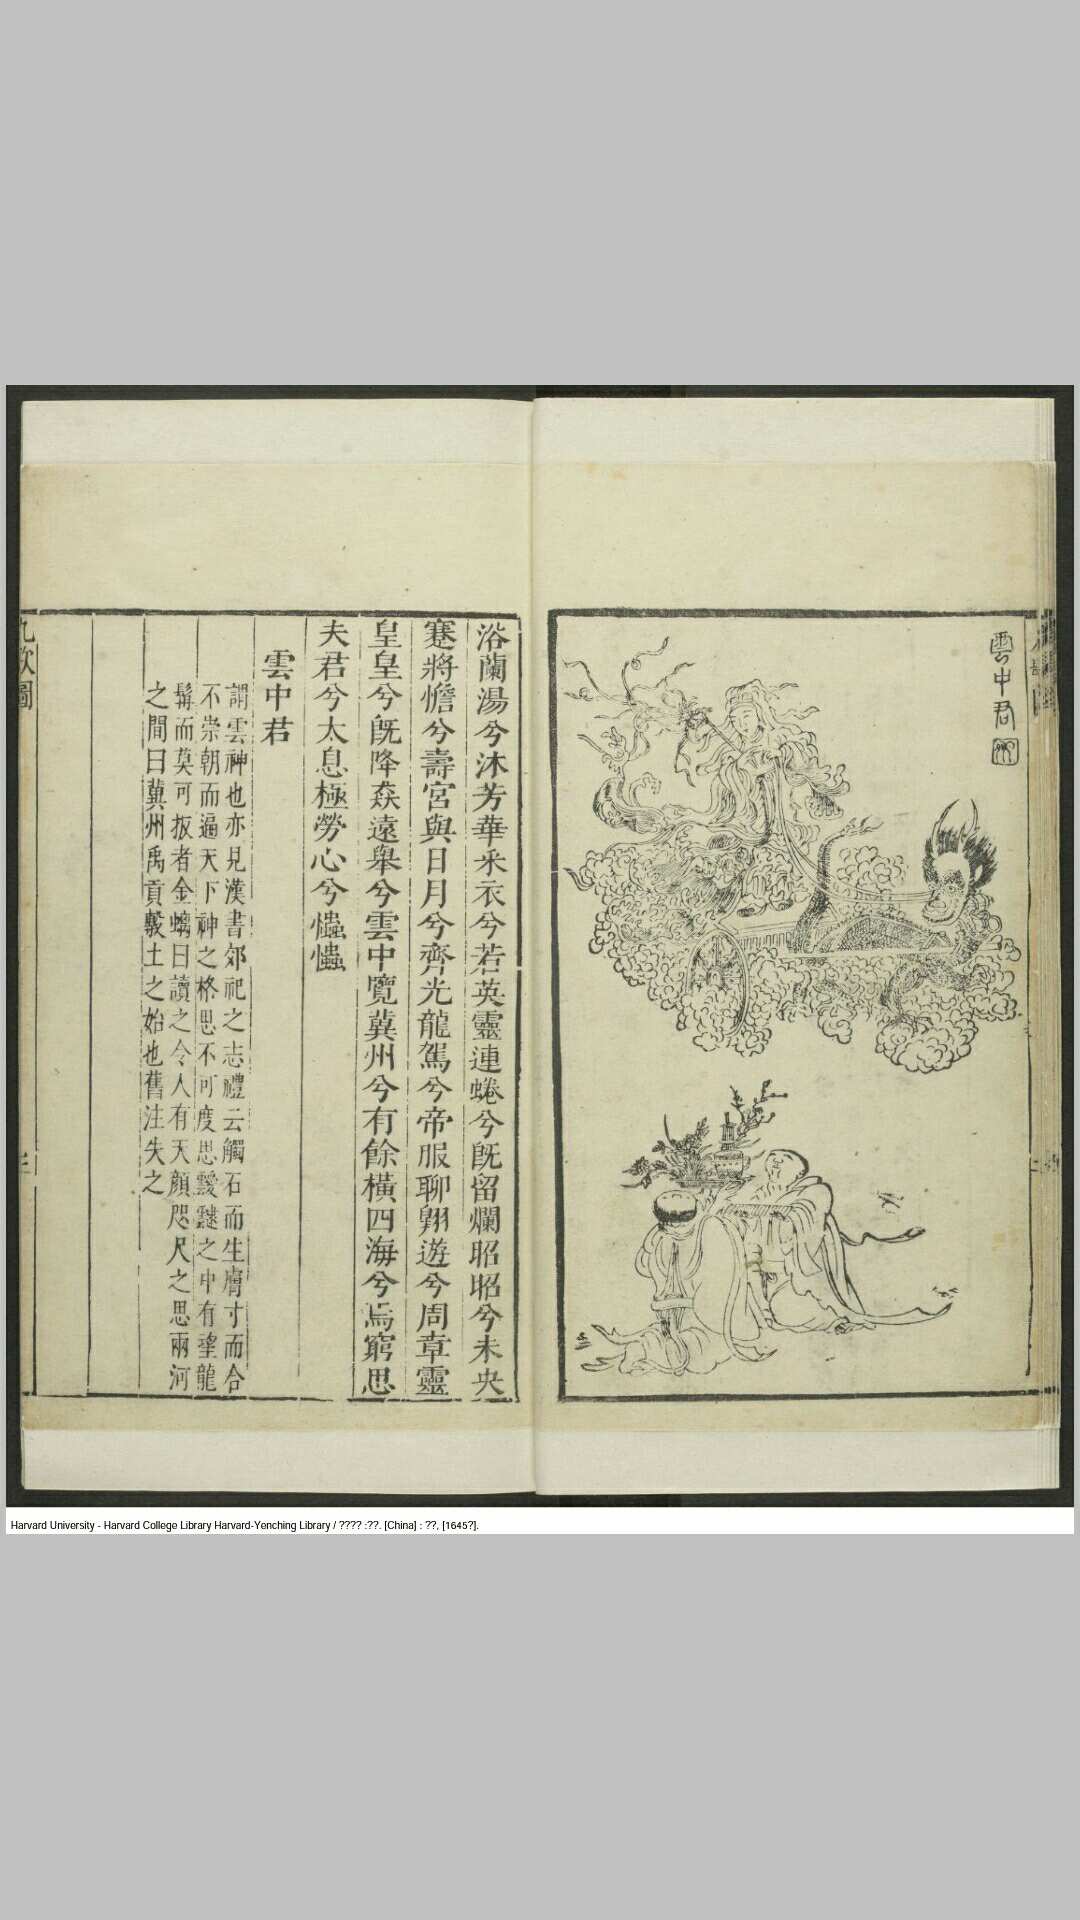 雲中君
浴蘭湯兮沐芳華采衣兮若英靈連蜷兮旣留爛昭昭兮未央
蹇將憺兮壽宮與日月兮齊光龍駕兮帝服聊翺遊兮周章靈
皇皇兮旣降猋遠舉兮雲中覽冀州兮有餘橫四海兮焉窮思
夫君兮太息極勞心兮𢥞𢥞
雲中君
謂雲神也亦見漢書郊祀之志禮云觸石而生膚寸而合
不崇朝而遍天下神之格思不可度思靉靆之中有望龍
髯而莫可扳者金螭曰讀之令人有天顏咫尺之思兩河
之間曰冀州禹貢載土之始也舊注失之
九歌圖
Harvard University - Harvard College Library Harvard-Yenching Library / ???? :??. [China] : ??, [1645?].